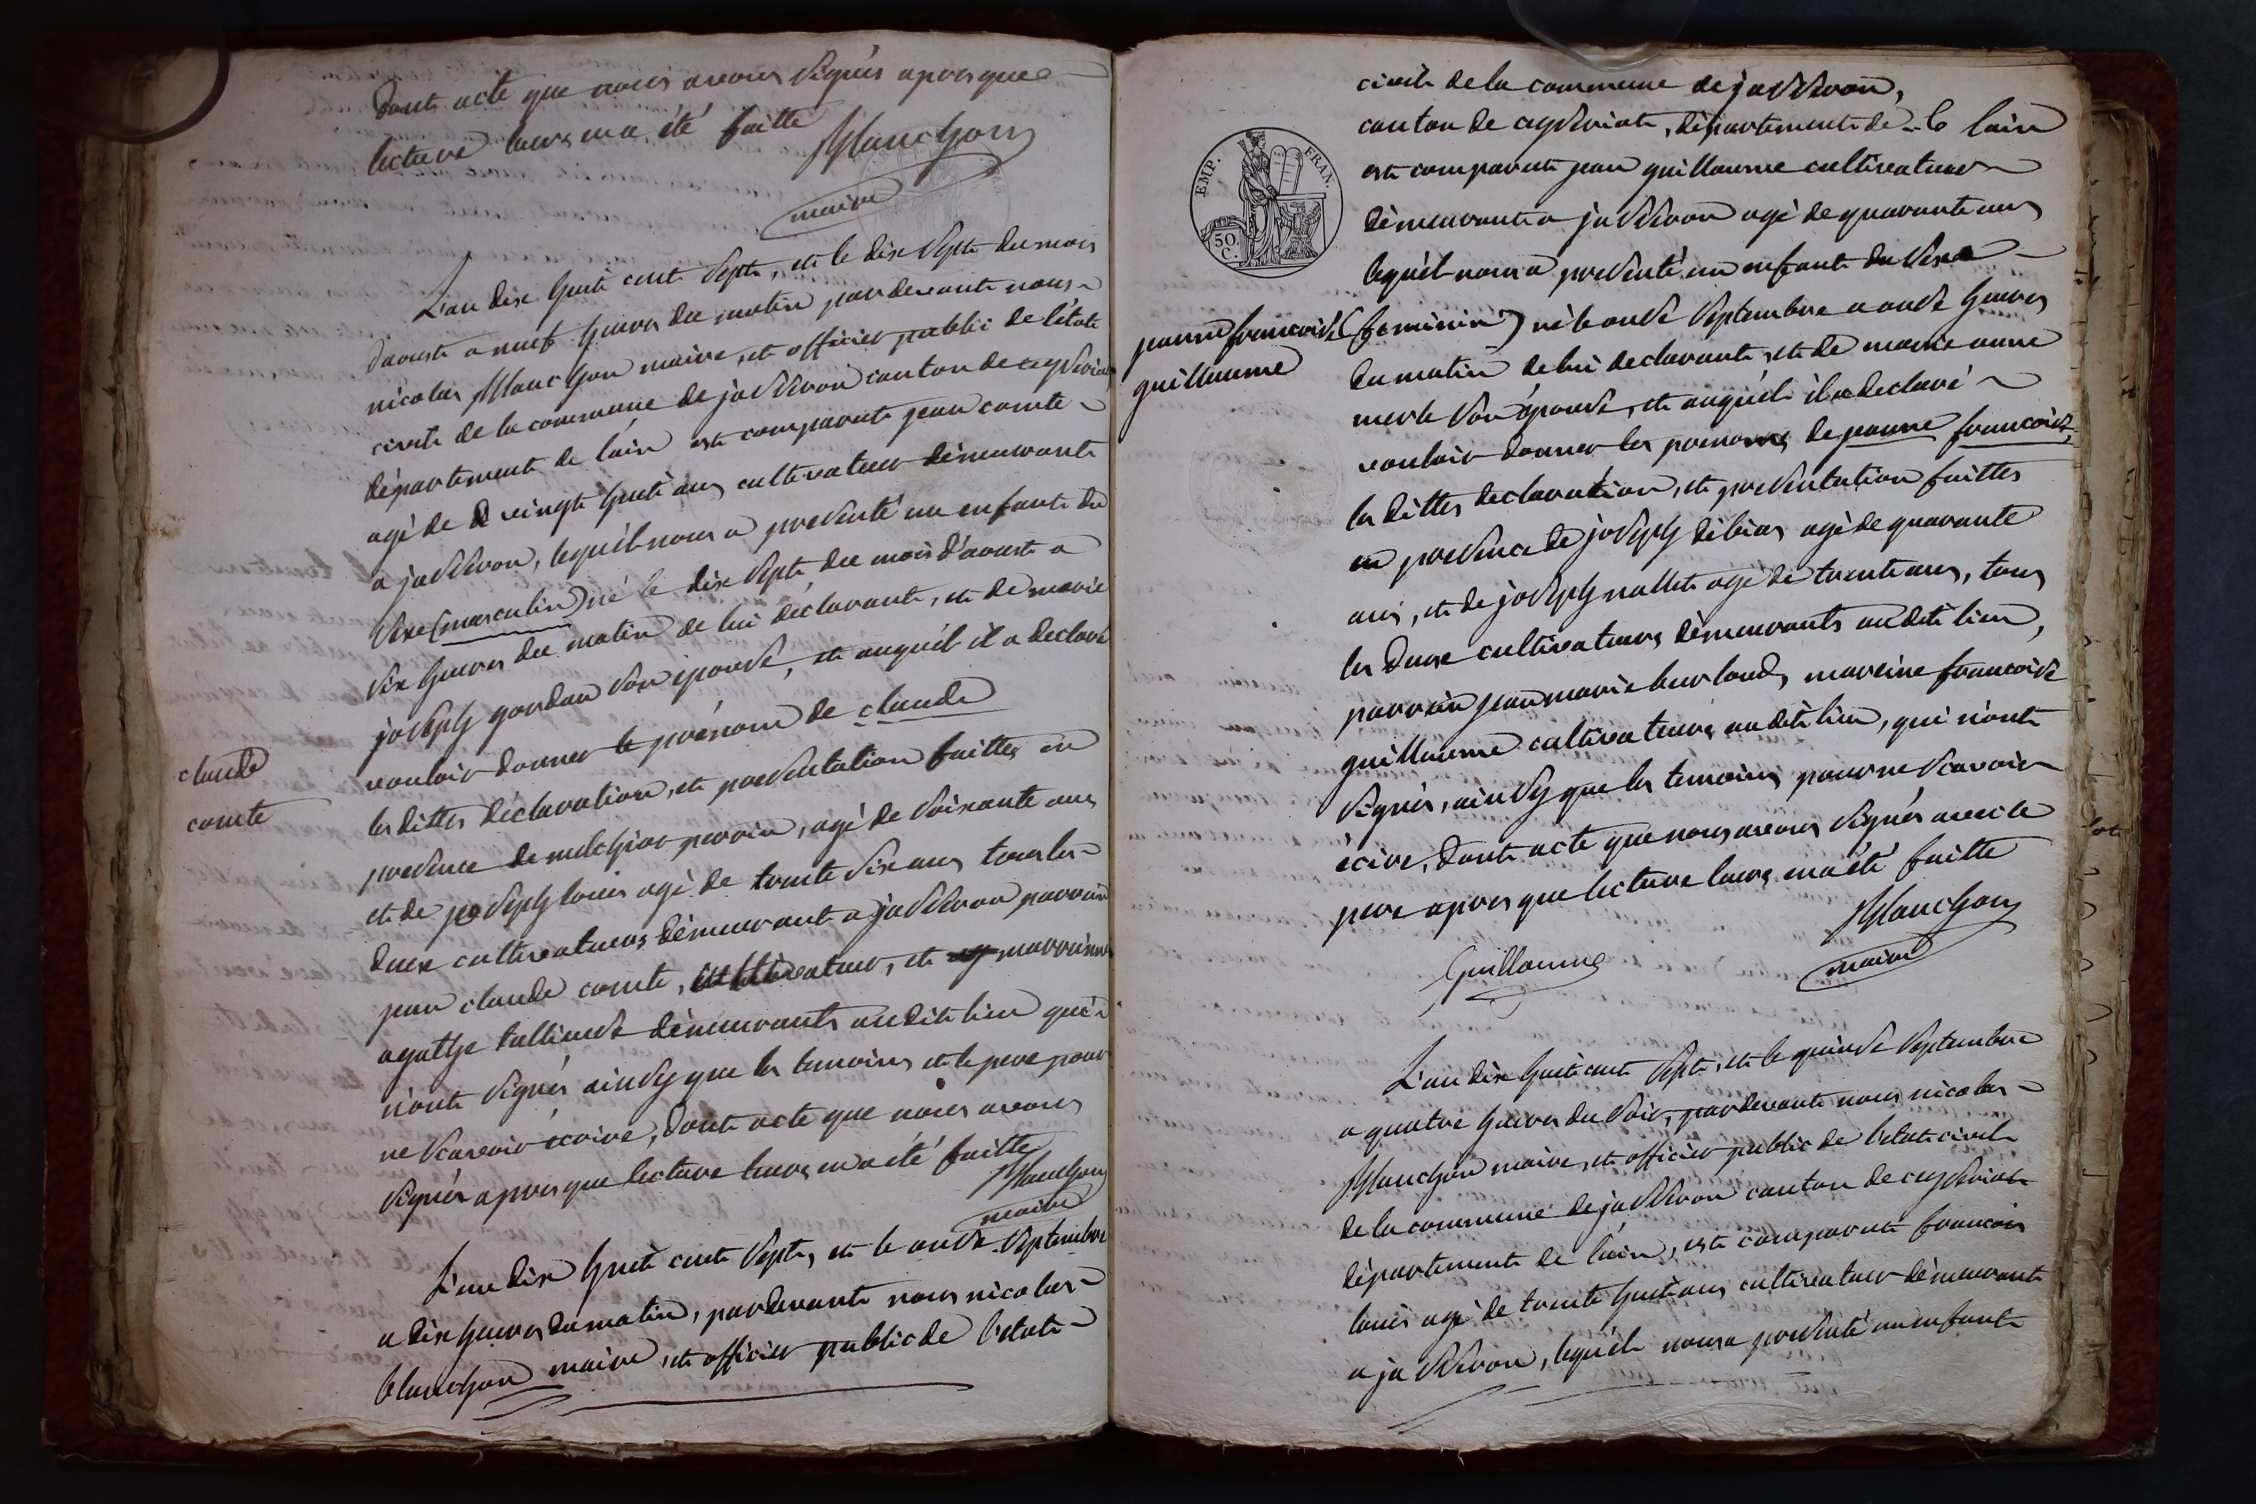 dont acte que nous avons signés apres que
lecture leurs en a été faitte
Blanchon
maire
L'an dix huit cent sept, et le dix sept du mois
d'aoust a neuf heures du matin pardevant nous
nicolas Blanchon maire, et officier public de l'état
civil de la commune de jasseron canton de ceyseriat
département de l'ain est comparut jean comte
agé de vingt huit ans cultivateur démeurant
a jasseron, lequél nous a presenté un enfant du
sexe (masculin) né le dix sept du mois d'aoust a
six heures du matin de lui déclarant, et de marie
joseph gordan son epouse, et auquél il a declaré
vouloir donner le prénom de claude
claude
comte
les dittes déclaration, et presentation faittes en
presence de melchior perrin, agé de soixante ans
et de joseph louis agé de trente six ans tous les
deux cultivateurs démeurant a jasseron parrain
jean claude comte, cultivateur, et marrainne
agathe démeurants au dit lieu qui
n'ont signés ainsy que les temoins et le pere pour
ne scavoir écrire, dont acte que nous avons
signés apres que lecture leurs en a été faitte
Blanchon
maire
L'an dix huit cent sept, et le onze septembre
a dix heures du matin, pardevant nous nicolas
blanchon maire, et officier public de l'etat
EMP. FRAN.
50.
C.
civil de la commune de jasseron,
canton de ceyseriat, département de l'ain
est comparut jean guillaume cultivateur
démeurant a jasseron agé de quarante ans
lequél nous a presenté un enfant du sexe
jeanne francoise
guillaume
(feminin) né le onze septembre a onze heures
du matin de lui declarant, et de marie anne
merle son épouse, et auquél il a declaré
vouloir donner les prenoms de jeanne francoise,
les dittes declaration, et presentation faittes
en presence de joseph débias agé de quarante
ans, et de joseph nallet agé de trente ans, tous
les deux cultivateurs démeurants au dit lieu,
parrain jean marie burloud, mareine francoise
guillaume cultivateurs au dit lieu, qui n'ont
signés, ainsy que les temoins pour ne scavoir
écrire, dont acte que nous avons signés avec le
pere apres que lecture leurs en a été faitte
Blanchon
maire
Guillaume
L'an dix huit cent sept, et le quinze septembre
a quatre heures du soir, pardevant nous nicolas
Blanchon maire, et officier public de l'etat civil
de la commune de jasseron canton de ceyseriat
département de l'ain, est comparut francois
louis agé de trente huit ans cultivateur démeurant
a jasseron, lequél nous a presenté un enfant